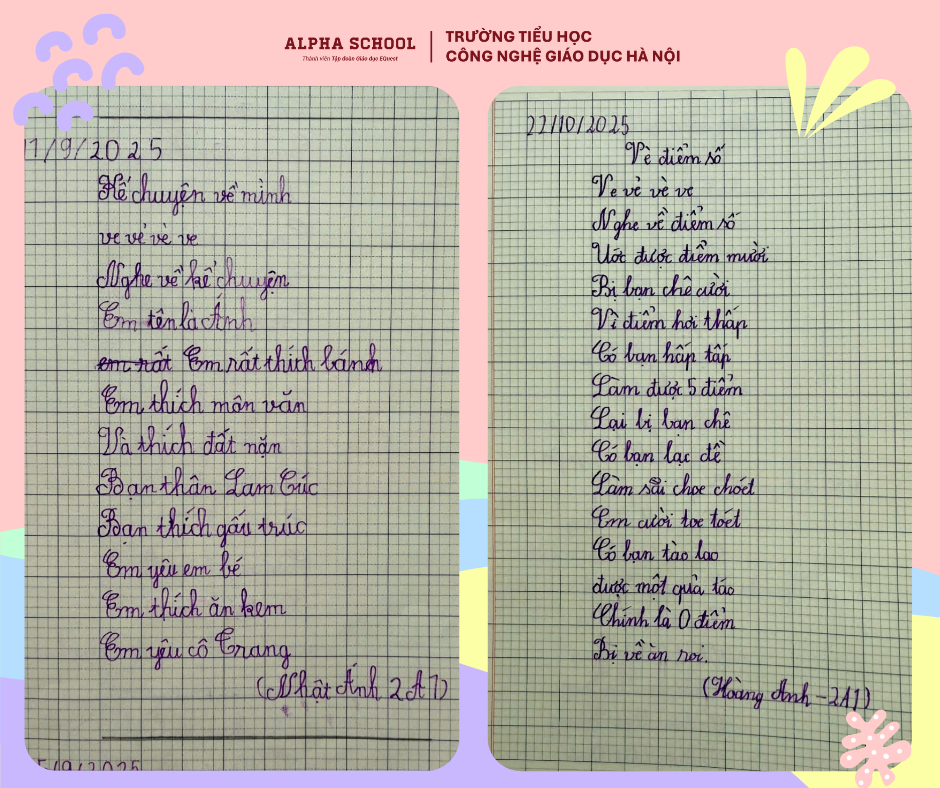 ALPHA SCHOOL
Thành viên Tập đoàn Giáo dục EQuest
TRƯỜNG TIỂU HỌC
CÔNG NGHỆ GIÁO DỤC HÀ NỘI
/9/2025
Kể chuyện về mình
ve vẻ vè ve
Nghe vè kể chuyện
Em tên là Ánh
em rất Em rất thích bánh
Em thích môn văn
Và thích đất nặn
Bạn thân Lam Cúc
Bạn thích gấu trúc
Em yêu em bé
Em thích ăn kem
Em yêu cô Trang
(Nhật Ánh 2A7)
/9/2025
22/10/2025
Vè điểm số
Ve vẻ vè ve
Nghe vè điểm số
Ước được điểm mười
Bị bạn chê cười
Vì điểm hơi thấp
Có bạn hấp tấp
Làm được 5 điểm
Lại bị bạn chê
Có bạn lạc đề
Làm sai choe choét
Em cười toe toét
Có bạn tào lao
được một quả táo
Chính là 0 điểm
Bị về ăn roi.
(Hoàng Anh - 2A1)